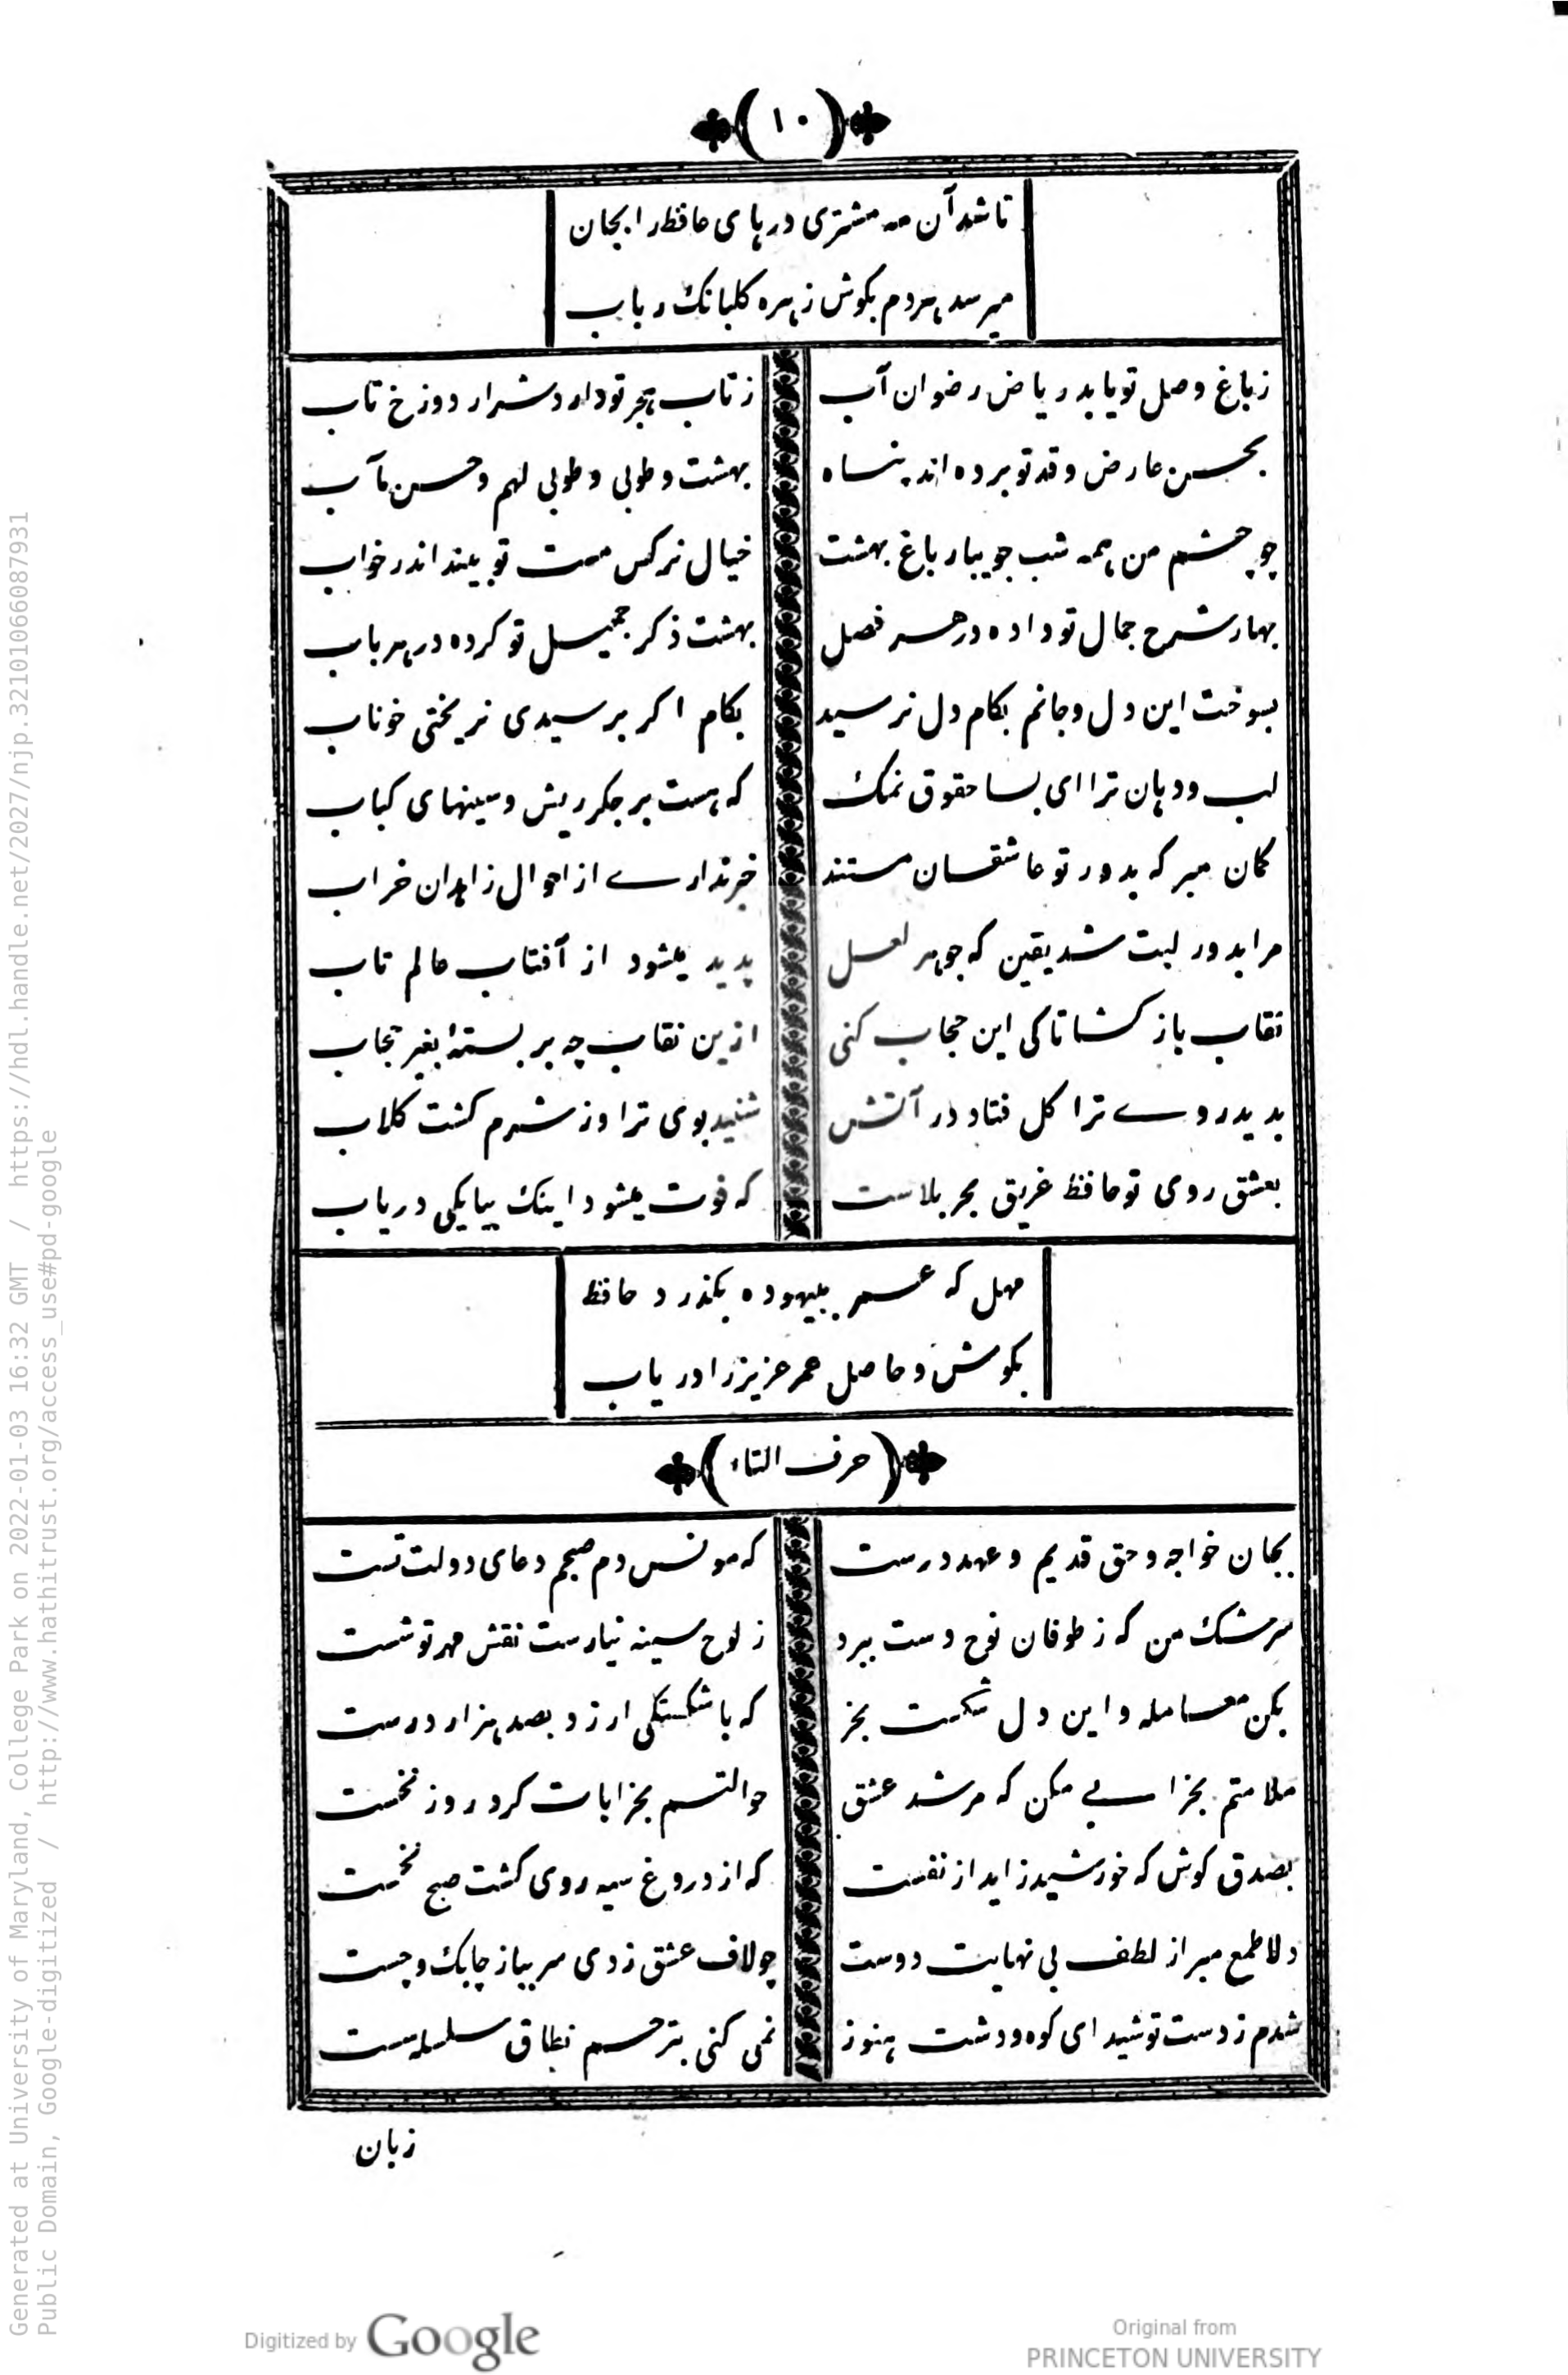 (۱۰)
تا شد آن مه مشتری درهای حافظ را بجان
میرسد هردم بکوش زهره کلبانک رباب
زباغ وصل تو یابد ریاض رضوان آب
ز تاب هجر تو دارد شرار دوزخ تاب
بحسن عارض وقد تو برده اند پناه
بهشت و طوبی و طوبی لهم و حسن مآب
چو چشم من همه شب جویبار باغ بهشت
خیال نرکس مست تو بیند اندر خواب
بهار شرح جمال تو داده در هر فصل
بهشت ذکر جمیل تو کرده در هر باب
بسوخت این دل وجانم بکام دل نرسید
بکام اکر برسیدی نریختی خوناب
لب ودهان ترا ای بسا حقوق نمک
که هست بر جکر ریش وسینهای کباب
کمان مبر که بدور تو عاشقان مستند
خبر نداری از احوال زاهدان خراب
مرا بدور لبت شد یقین که جوهر لعل
پدید میشود از آفتاب عالم تاب
نقاب باز کشا تا کی این حجاب کنی
ازین نقاب چه بر بستهٔ بغیر حجاب
بدید روی ترا کل فتاد در آتش
شنید بوی ترا وز شرم کشت کلاب
بعشق روی تو حافظ غریق بحر بلاست
که فوت میشود اینک بیا یکی دریاب
مهل که عمر ببیهوده بکذرد حافظ
بکوش و حاصل عمر عزیز را دریاب
(حرف التاء)
بجان خواجه وحق قدیم وعهد درست
که مونس دم صبحم دعای دولت تست
سرشک من که ز طوفان نوح دست ببرد
ز لوح سینه نیارست نقش مهر تو شست
بکن معامله و این دل شکست بخر
که با شکستکی ارزد بصد هزار درست
ملامتم بخرابی مکن که مرشد عشق
حوالتم بخرابات کرد روز نخست
بصدق کوش که خورشید زاید از نفست
که از دروغ سیه روی کشت صبح نخست
دلا طمع مبر از لطف بی نهایت دوست
چو لاف عشق زدی سر بباز چابک وچست
شدم ز دست تو شیدای کوه ودشت هنوز
نمی کنی بترحم نطاق سلسله ست
زبان
Generated at University of Maryland, College Park on 2022-01-03 16:32 GMT / https://hdl.handle.net/2027/njp.32101066087931
Public Domain, Google-digitized / http://www.hathitrust.org/access_use#pd-google
Digitized by Google
Original from
PRINCETON UNIVERSITY